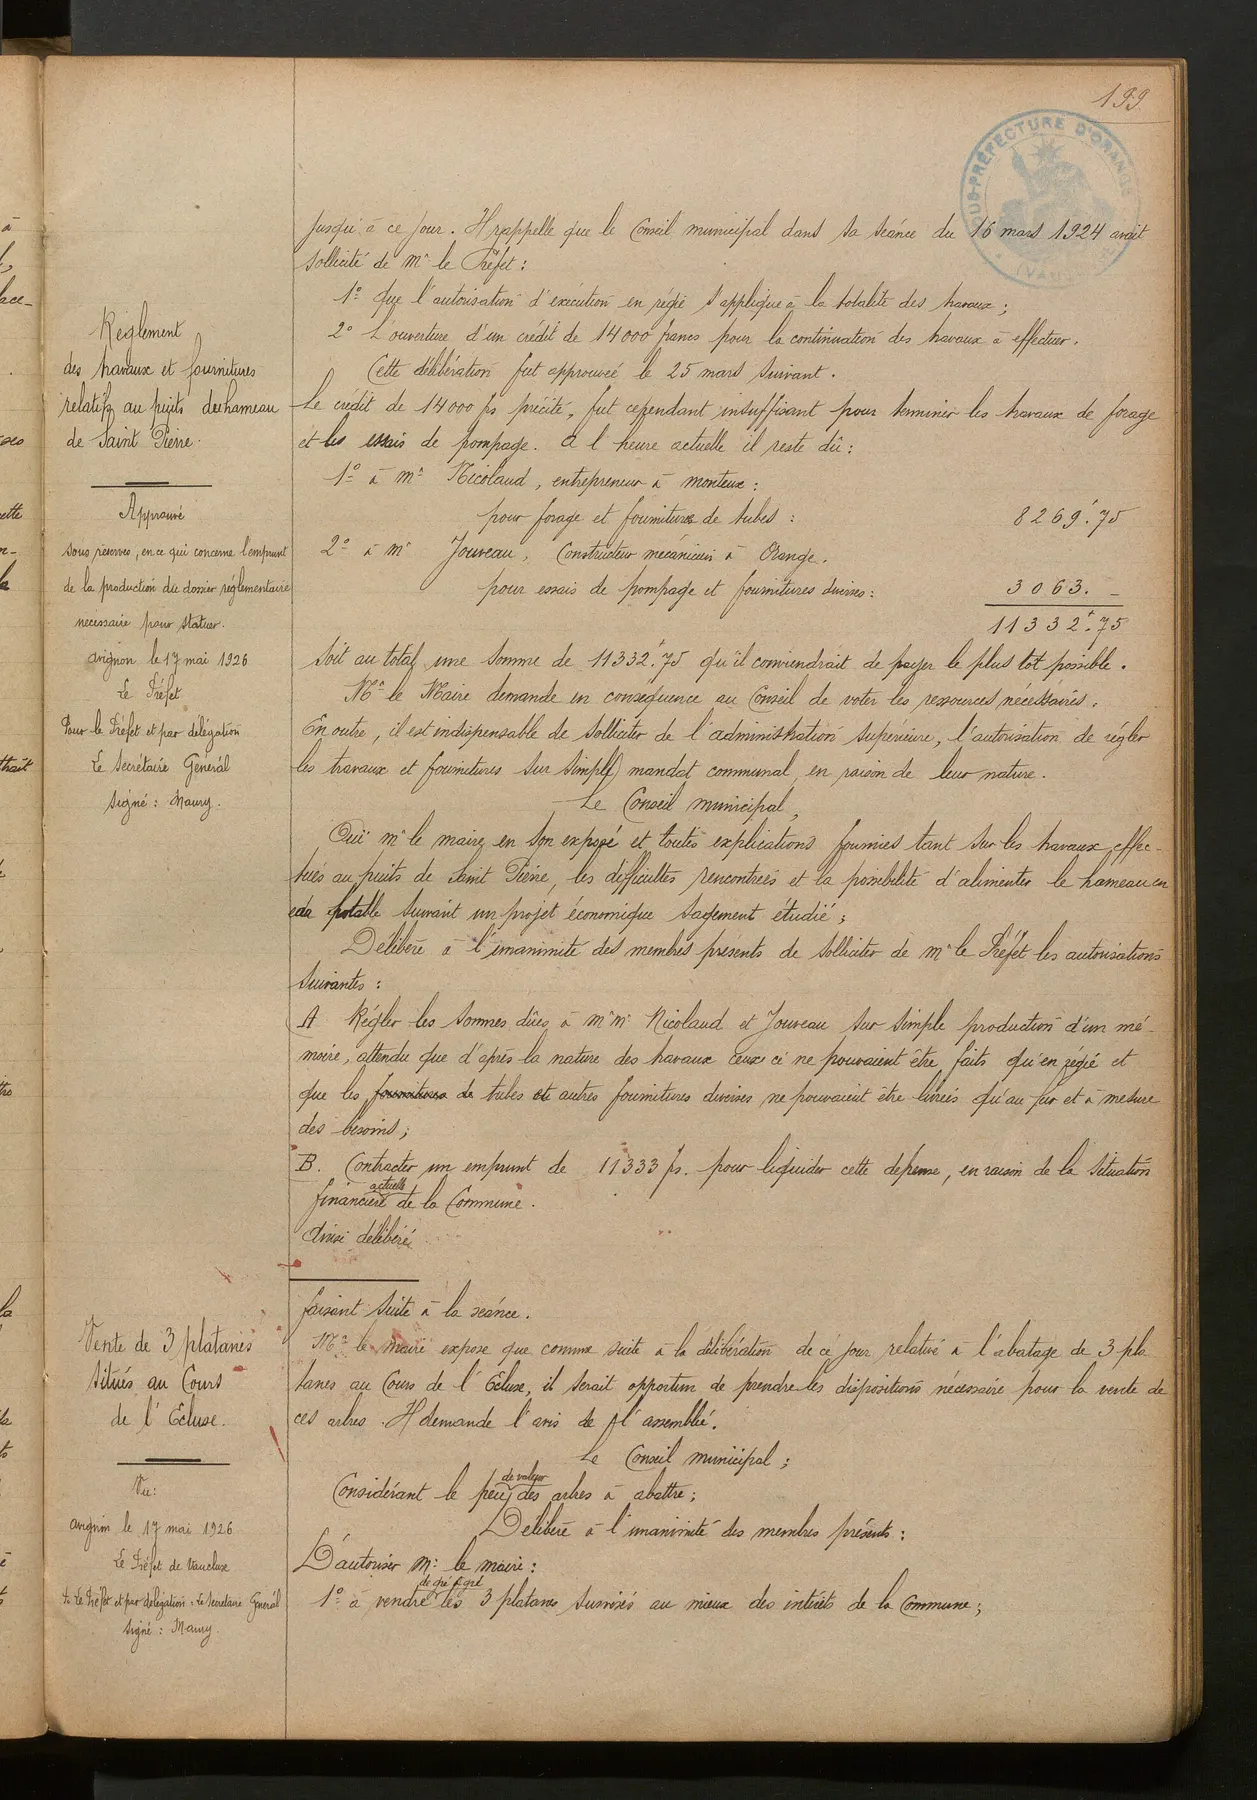 199
SOUS-PRÉFECTURE D'ORANGE
(VAUCLUSE)
jusqu'à ce jour. Il rappelle que le Conseil municipal dans sa séance du 16 mars 1924 avait
sollicité de Mr le Préfet :
1º que l'autorisation d'exécution en régie s'applique à la totalité des travaux ;
2º L'ouverture d'un crédit de 14000 francs pour la continuation des travaux à effectuer.
Cette délibération fut approuvée le 25 mars suivant.
Le crédit de 14000 frs précité, fut cependant insuffisant pour terminer les travaux de forage
et les essais de pompage. A l'heure actuelle il reste dû :
1º à Mr Nicolaud, entrepreneur à Monteux :
pour forage et fournitures de tubes : 8269f.75
2º à Mr Jouveau, Constructeur mécanicien à Orange.
pour essais de pompage et fournitures diverses : 3063. –
11332f.75
Soit au total une somme de 11332f.75 qu'il conviendrait de payer le plus tôt possible.
Mr le Maire demande en conséquence au Conseil de voter les ressources nécessaires.
En outre, il est indispensable de solliciter de l'administration supérieure, l'autorisation de régler
les travaux et fournitures sur simple mandat communal, en raison de leur nature.
Le Conseil municipal,
Ouï Mr le maire en son exposé et toutes explications fournies tant sur les travaux effec-
tués au puits de Saint Pierre, les difficultés rencontrées et la possibilité d'alimenter le hameau en
eau potable suivant un projet économique sagement étudié ;
Délibère à l'unanimité des membres présents de solliciter de Mr le Préfet les autorisations
suivantes :
A Régler les sommes dûes à Mr Mr Nicolaud et Jouveau sur simple production d'un mé-
moire, attendu que d'après la nature des travaux ceux ci ne pouvaient être faits qu'en régie et
que les fournitures de tubes et autres fournitures diverses ne pouvaient être livrés qu'au fur et à mesure
des besoins ;
B. Contracter un emprunt de 11333 frs. pour liquider cette dépense, en raison de la situation
financière actuelle de la Commune.
Ainsi délibéré
faisant suite à la séance.
Mr le maire expose que comme suite à la délibération de ce jour relative à l'abatage de 3 pla
tanes au Cours de l'Ecluse, il serait opportun de prendre les dispositions nécessaire pour la vente de
ces arbres. Il demande l'avis de l'assemblée.
Le Conseil municipal ;
Considérant le peu de valeur des arbres à abattre ;
Délibère à l'unanimité des membres présents :
D'autoriser Mr le maire :
1º à vendre de gré à gré les 3 platanes susvisés au mieux des intérêts de la Commune ;
Règlement
des travaux et fournitures
relatifs au puits du hameau
de Saint Pierre.
Approuvé
sous réserves, en ce qui concerne l'emprunt
de la production du dossier réglementaire
necessaire pour statuer.
Avignon le 17 mai 1926
Le Préfet
Pour le Préfet et par délégation
Le Secrétaire Général
Signé : Maury.
Vente de 3 platanes
situés au Cours
de l'Ecluse.
Vu :
Avignon le 17 mai 1926
Le Préfet de Vaucluse
Le Préfet et par délégation : Le Secrétaire Général
Signé : Maury